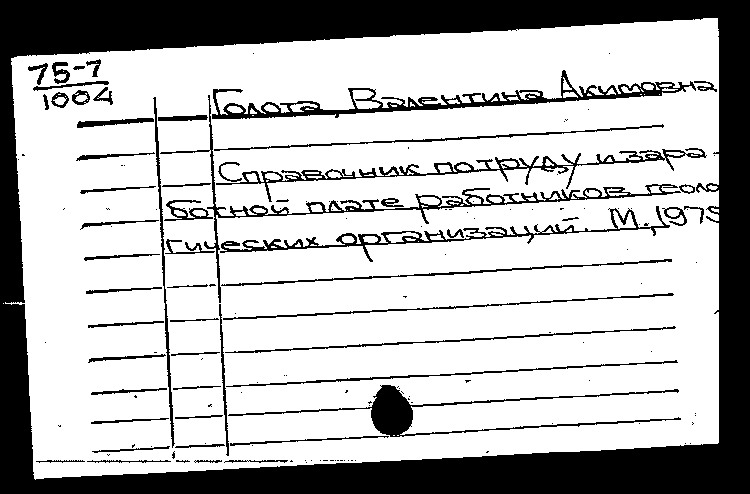 75-7
1004
Голота, Валентина Акимовна
Справочник по труду и зара-
ботной плате работников геоло
гических организаций. М., 1975